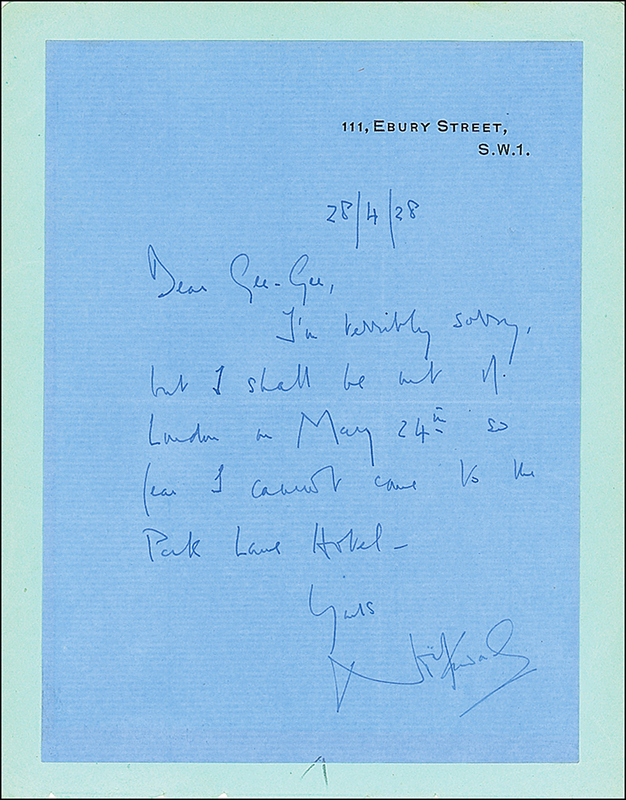 111, EBURY STREET,
S.W.1.
28/4/28
Dear Gee-Gee,
I'm terribly sorry,
but I shall be out of
London on May 24th so
fear I cannot come to the
Park Lane Hotel -
Yours
Noël Coward